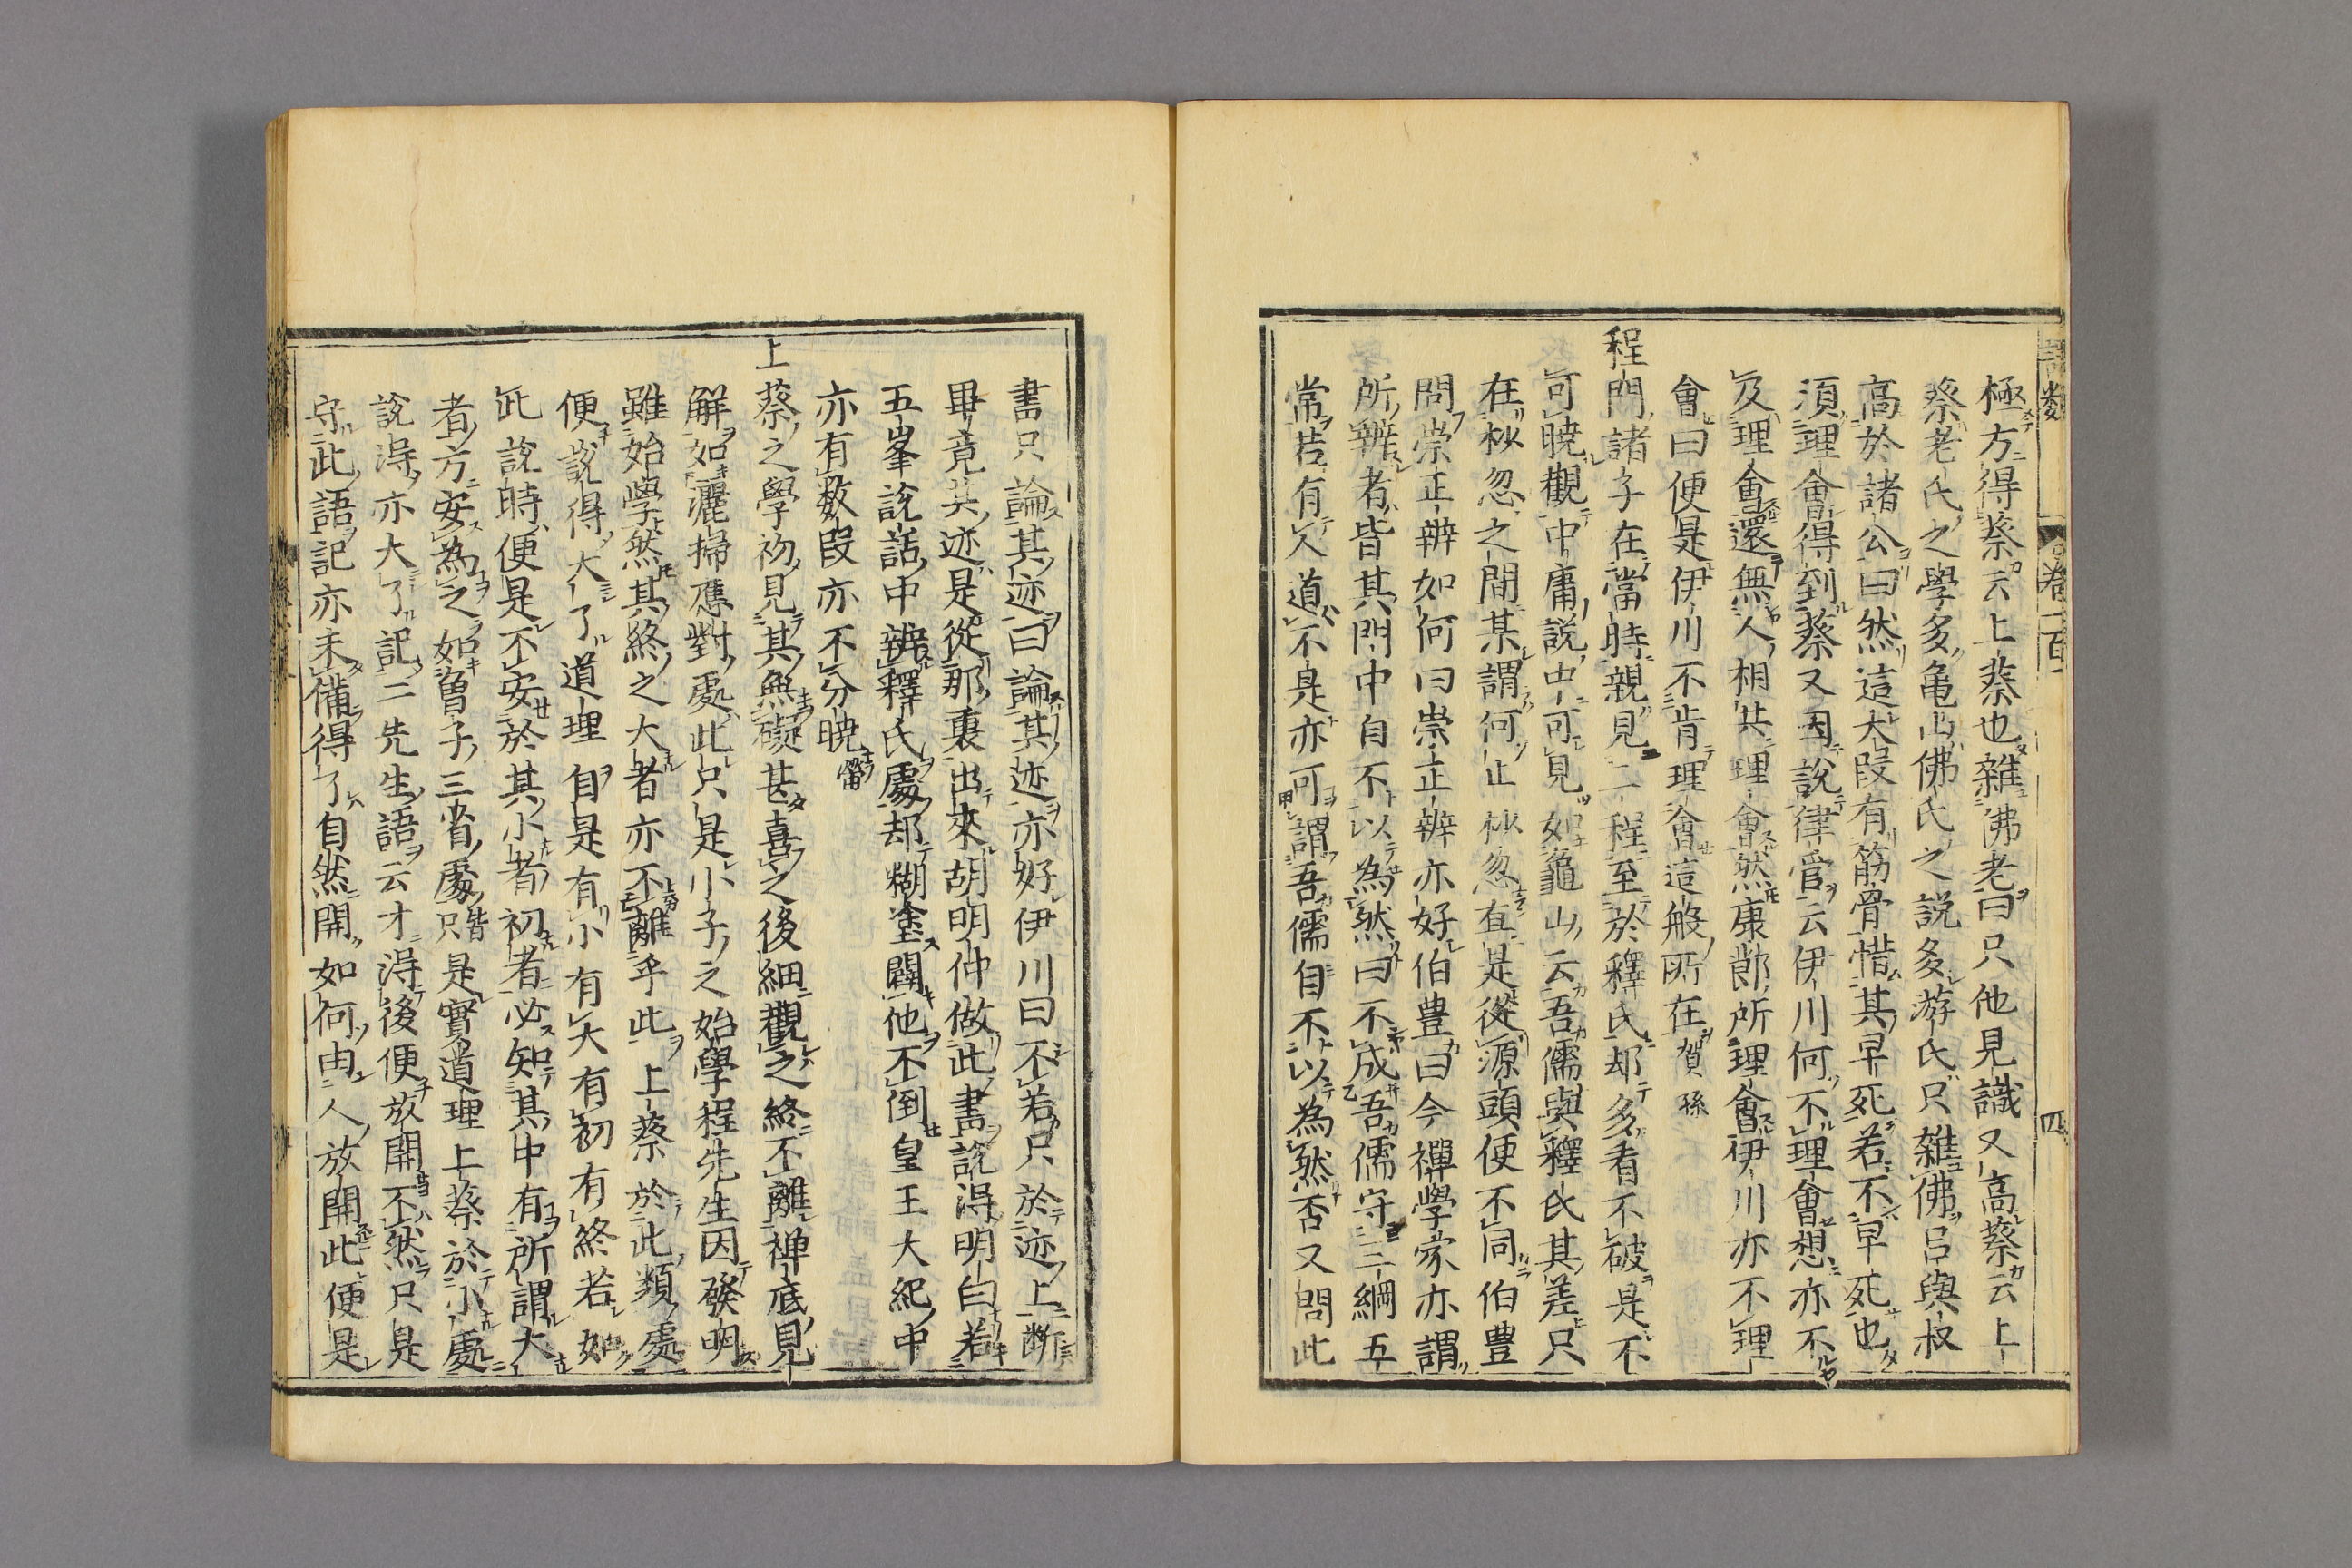 語類　卷一百一　四
極方得蔡云上蔡也雜佛老曰只他見識又高蔡云上
蔡老氏之學多亀山佛氏之説多游氏只雜佛呂與叔
高於諸公曰然這大段有筋骨惜其早死若不早死也
須理會得到蔡又因説律管云伊川何不理會想亦不
及理會還無人相共理會然康節所理會伊川亦不理
會曰便是伊川不肯理會這般所在賀孫
程門諸子在當時親見二程至於釋氏却多看不破是不
可曉觀中庸説中可見如龜山云吾儒與釋氏其差只
在杪忽之間某謂何止杪忽直是從源頭便不同伯豊
問崇正辨如何曰崇正辨亦好伯豊曰今禪學家亦謂
所辨者皆其門中自不以為然曰不成吾儒守三綱五
常若有人道不是亦可謂吾儒自不以為然否又問此
書只論其迹曰論其迹亦好伊川曰不若只於迹上断
畢竟其迹是從那裏出來胡明仲做此書説得明白若
五峯説話中辨釋氏處却糊塗闢他不倒皇王大紀中
亦有数段亦不分曉㽦
上蔡之學初見其無礙甚喜之後細觀之終不離禅底見
解如灑掃應對處此只是小子之始學程先生因發明
雖始學然其終之大者亦不離乎此上蔡於此類處
便説得大了道理自是有小有大有初有終若如
此説時便是不安於其小者初者必知其中有所謂大
者方安為之如曾子三省處皆只是實道理上蔡於小處
說得亦大了記二先生語云才得後便放開不然只是
守此語記亦未備得了自然開如何由人放開此便是